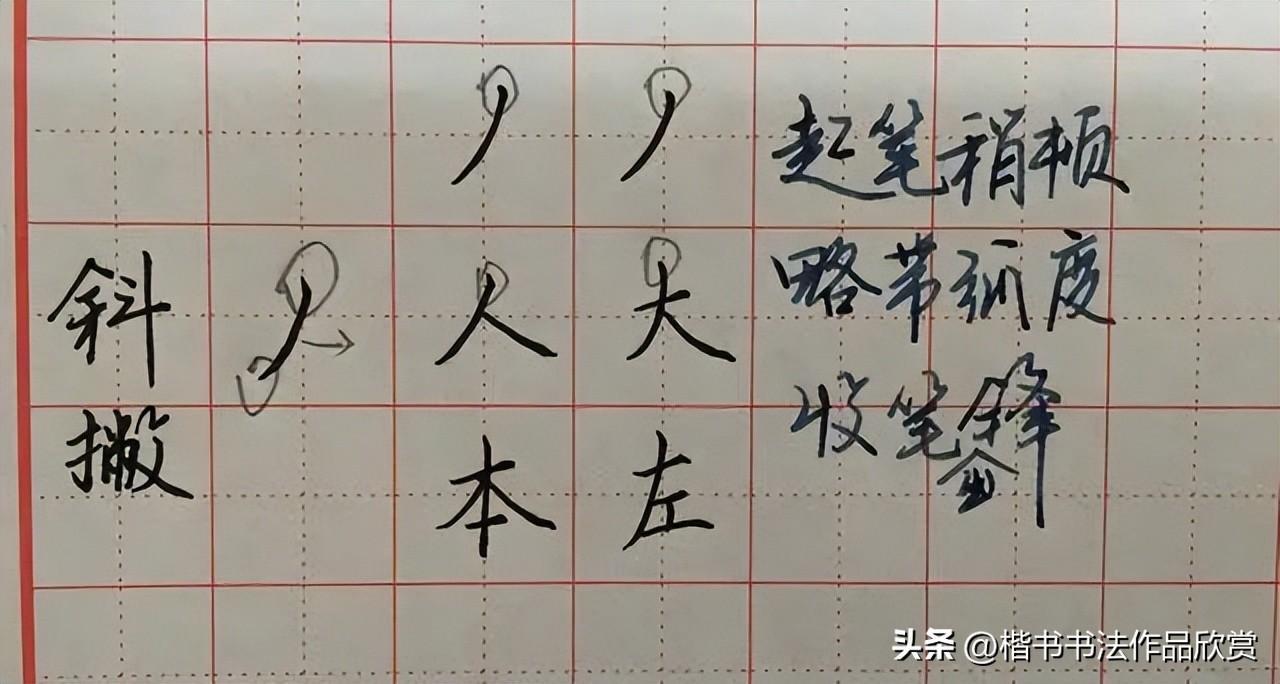 斜撇
丿 丿
人 大
本 左
起笔稍顿
略带弧度
收笔
头条 @楷书书法作品欣赏